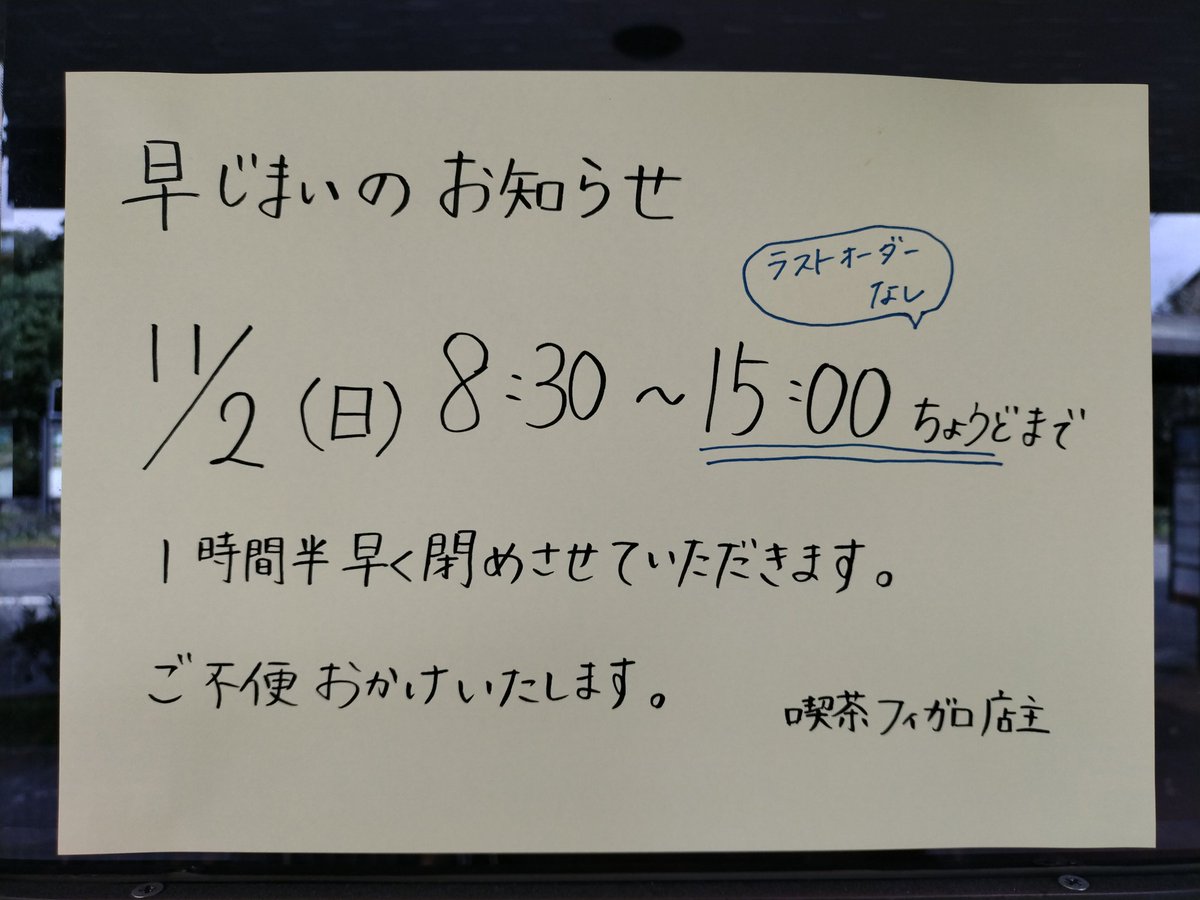 早じまいの お知らせ
ラストオーダー
なし
11/2 (日) 8:30 ~ 15:00 ちょうどまで
1時間半早く閉めさせていただきます。
ご不便おかけいたします。
喫茶フィガロ店主